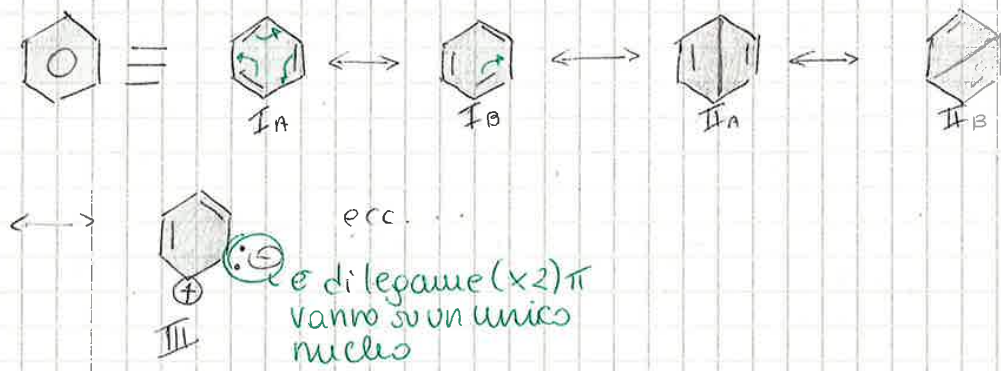 I A
I B
II A
II B
ecc. . .
e⁻ di legame (x2) π
vanno su un unico
nucleo
III